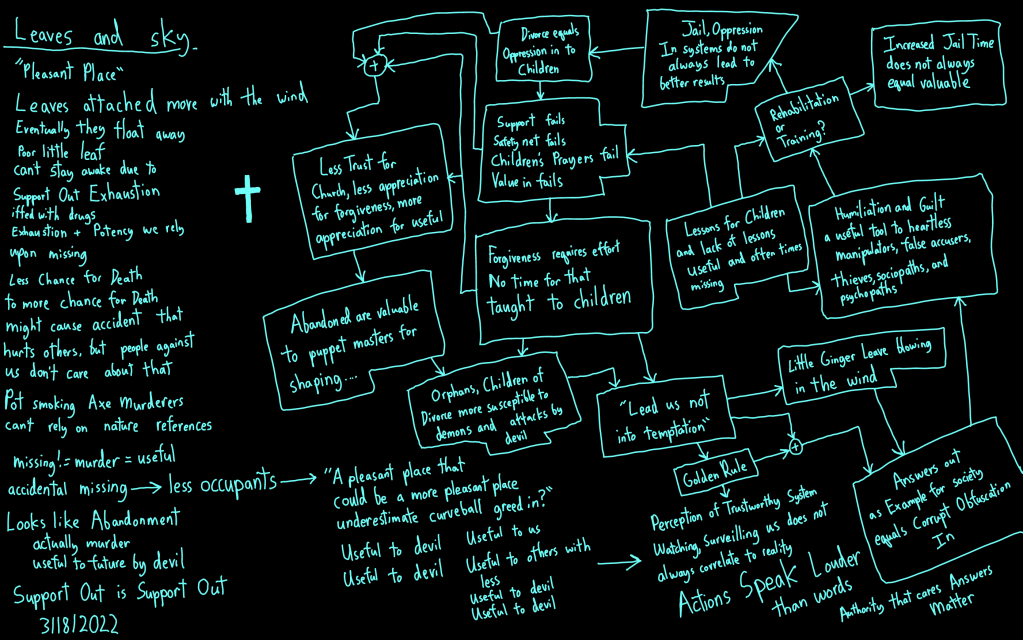 Leaves and sky.
"Pleasant Place"
Leaves attached move with the wind
Eventually they float away
Poor little leaf
cant stay awake due to
Support Out Exhaustion
iffed with drugs
Exhaustion + Potency we rely
upon missing
Less Chance for Death
to more chance for Death
might cause accident that
hurts others, but people against
us don't care about that
Pot smoking Axe Murderers
can't rely on nature references
missing != murder = useful
accidental missing → less occupants →
Looks like Abandonment
actually murder
useful to future by devil
Support Out is Support Out
3/18/2022
"A pleasant place that
could be a more pleasant place
underestimate curveball greed in?"
Useful to devil
Useful to devil
Useful to us
Useful to others with
less
useful to devil
Useful to devil
Divorce equals
Oppression in to
Children
Jail, Oppression
In systems do not
always lead to
better results
Increased Jail Time
does not always
equal valuable
Rehabilitation
or
Training?
+
Less Trust for
Church, less appreciation
for forgiveness, more
appreciation for useful
Support fails
Safety net fails
Children's Prayers fail
Value in fails
Lessons for Children
and lack of lessons
useful and often times
missing
Humiliation and Guilt
a useful tool to heartless
manipulators, false accusers,
thieves, sociopaths, and
psychopaths
Forgiveness requires effort
No time for that
taught to children
Abandoned are valuable
to puppet masters for
shaping...
Orphans, Children of
Divorce more susceptible to
demons and attacks by
devil
"Lead us not
into temptation"
Little Ginger Leave blowing
in the wind
+
Golden Rule
Answers out
as Example for society
equals Corrupt Obfuscation
In
Perception of Trustworthy System
Watching, Surveilling us does not
always correlate to reality
Actions Speak Louder
than words
Authority that cares Answers
Matter